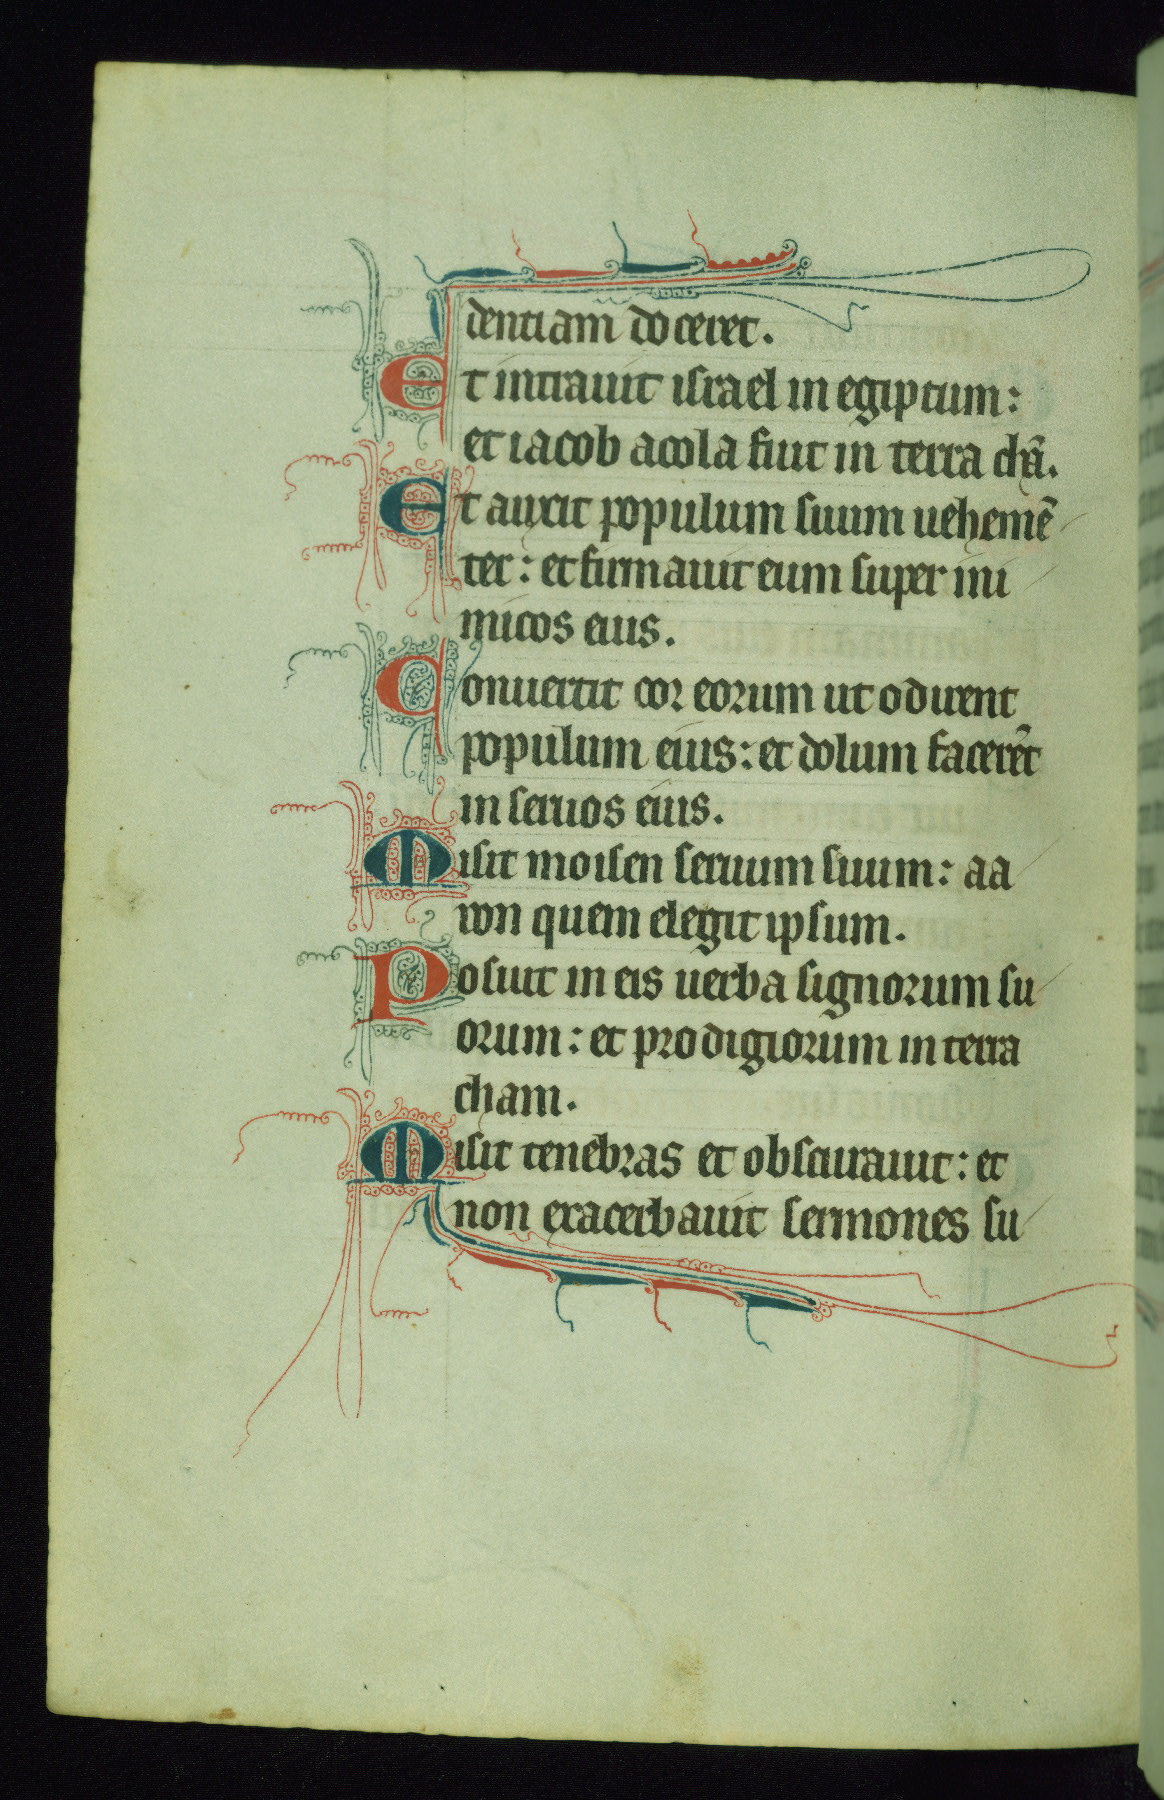 dentiam doceret.
Et intrauit israel in egiptum:
et iacob acola fuit in terra chā.
Et auxit populum suum uehemē
ter: et firmauit eum super ini
micos eius.
Conuertit cor eorum ut odirent
populum eius: et dolum facerēt
in seruos eius.
Misit moisen seruum suum: aa
ron quem elegit ipsum.
Posuit in eis uerba signorum su
orum: et prodigiorum in terra
cham.
Misit tenebras et obscurauit: et
non exacerbauit sermones su